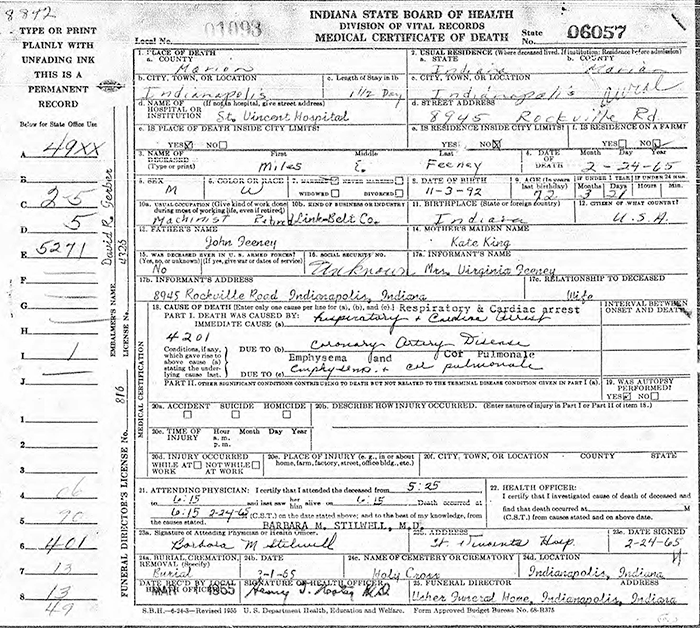 8892
INDIANA STATE BOARD OF HEALTH
DIVISION OF VITAL RECORDS
MEDICAL CERTIFICATE OF DEATH
Local No. 01093
State No. 06057
TYPE OR PRINT
PLAINLY WITH
UNFADING INK
THIS IS A
PERMANENT
RECORD
Below for State Office Use
A 49XX
B
C 2-5
D 5
E 5271
F
G
H
I 1
J
1
2
3
4 06
5 90
6 401
7 13
8 13
49
EMBALMER'S NAME David R. Gerber LICENSE No. 4326
FUNERAL DIRECTOR'S LICENSE No. 816
MEDICAL CERTIFICATION
1. PLACE OF DEATH
a. COUNTY
Marion
2. USUAL RESIDENCE (Where deceased lived. If institution: Residence before admission)
a. STATE Indiana
b. COUNTY Marion
b. CITY, TOWN, OR LOCATION
Indianapolis
c. Length of Stay in 1b
1 1/2 Day
c. CITY, TOWN, OR LOCATION
Indianapolis rural
d. NAME OF HOSPITAL OR INSTITUTION (If not in hospital, give street address)
St. Vincent Hospital
d. STREET ADDRESS
8945 Rockville Rd.
e. IS PLACE OF DEATH INSIDE CITY LIMITS?
YES NO
e. IS RESIDENCE INSIDE CITY LIMITS?
YES NO
f. IS RESIDENCE ON A FARM?
YES NO
3. NAME OF DECEASED (Type or print)
First Middle Last
Miles E. Feeney
4. DATE OF DEATH Month Day Year
2-24-65
5. SEX
M
6. COLOR OR RACE
W
7. MARRIED NEVER MARRIED
WIDOWED DIVORCED
8. DATE OF BIRTH
11-3-92
9. AGE (In years last birthday)
72
IF UNDER 1 YEAR IF UNDER 24 HRS
Months Days Hours Min.
3 21
10a. USUAL OCCUPATION (Give kind of work done during most of working life, even if retired)
Machinist Retired
10b. KIND OF BUSINESS OR INDUSTRY
Link-Belt Co.
11. BIRTHPLACE (State or foreign country)
Indiana
12. CITIZEN OF WHAT COUNTRY?
U.S.A.
13. FATHER'S NAME
John Feeney
14. MOTHER'S MAIDEN NAME
Kate King
15. WAS DECEASED EVER IN U. S. ARMED FORCES?
(Yes, no, or unknown) (If yes, give war or dates of service)
No
16. SOCIAL SECURITY NO.
Unknown
17a. INFORMANT'S NAME
Mrs. Virginia Feeney
17b. INFORMANT'S ADDRESS
8945 Rockville Road Indianapolis, Indiana
17c. RELATIONSHIP TO DECEASED
Wife
18. CAUSE OF DEATH (Enter only one cause per line for (a), (b), and (c).)
PART I. DEATH WAS CAUSED BY:
IMMEDIATE CAUSE (a)
Respiratory & Cardiac arrest
Respiratory + Cardiac Arrest
INTERVAL BETWEEN ONSET AND DEATH
4201
Conditions, if any, which gave rise to above cause (a) stating the underlying cause last.
DUE TO (b) Coronary Artery Disease
Emphysema and Cor Pulmonale
DUE TO (c) Emphysema + cor pulmonale
PART II. OTHER SIGNIFICANT CONDITIONS CONTRIBUTING TO DEATH BUT NOT RELATED TO THE TERMINAL DISEASE CONDITION GIVEN IN PART I (a).
19. WAS AUTOPSY PERFORMED?
YES NO
20a. ACCIDENT SUICIDE HOMICIDE
20b. DESCRIBE HOW INJURY OCCURRED. (Enter nature of injury in Part I or Part II of item 18.)
20c. TIME OF INJURY Hour Month Day Year
a. m.
p. m.
20d. INJURY OCCURRED
WHILE AT WORK NOT WHILE AT WORK
20e. PLACE OF INJURY (e. g., in or about home, farm, factory, street, office bldg., etc.)
20f. CITY, TOWN, OR LOCATION COUNTY STATE
21. ATTENDING PHYSICIAN: I certify that I attended the deceased from 5:25
to 6:15 and last saw her him alive on 6:15 Death occurred at
6:15 2-24-65 (C.S.T.) on the date stated above; and to the best of my knowledge, from the causes stated.
22. HEALTH OFFICER:
I certify that I investigated cause of death of deceased and find that death occurred at M
(C.S.T.) from causes stated and on above date.
BARBARA M. STILWELL, M.D.
23a. Signature of Attending Physician or Health Officer.
Barbara M Stilwell
23b. ADDRESS
St Vincents Hosp
23c. DATE SIGNED
2-24-65
24a. BURIAL, CREMATION, REMOVAL (Specify)
Burial
24b. DATE
24c. NAME OF CEMETERY OR CREMATORY
Holy Cross
24d. LOCATION
Indianapolis, Indiana
DATE REC'D BY LOCAL HEALTH OFFICER
MAR 1965
SIGNATURE OF HEALTH OFFICER
25. FUNERAL DIRECTOR ADDRESS
Usher Funeral Home, Indianapolis, Indiana
S.B.H.—6-24-3—Revised 1955 U. S. Department Health, Education and Welfare. Form Approved Budget Bureau No. 68-R375